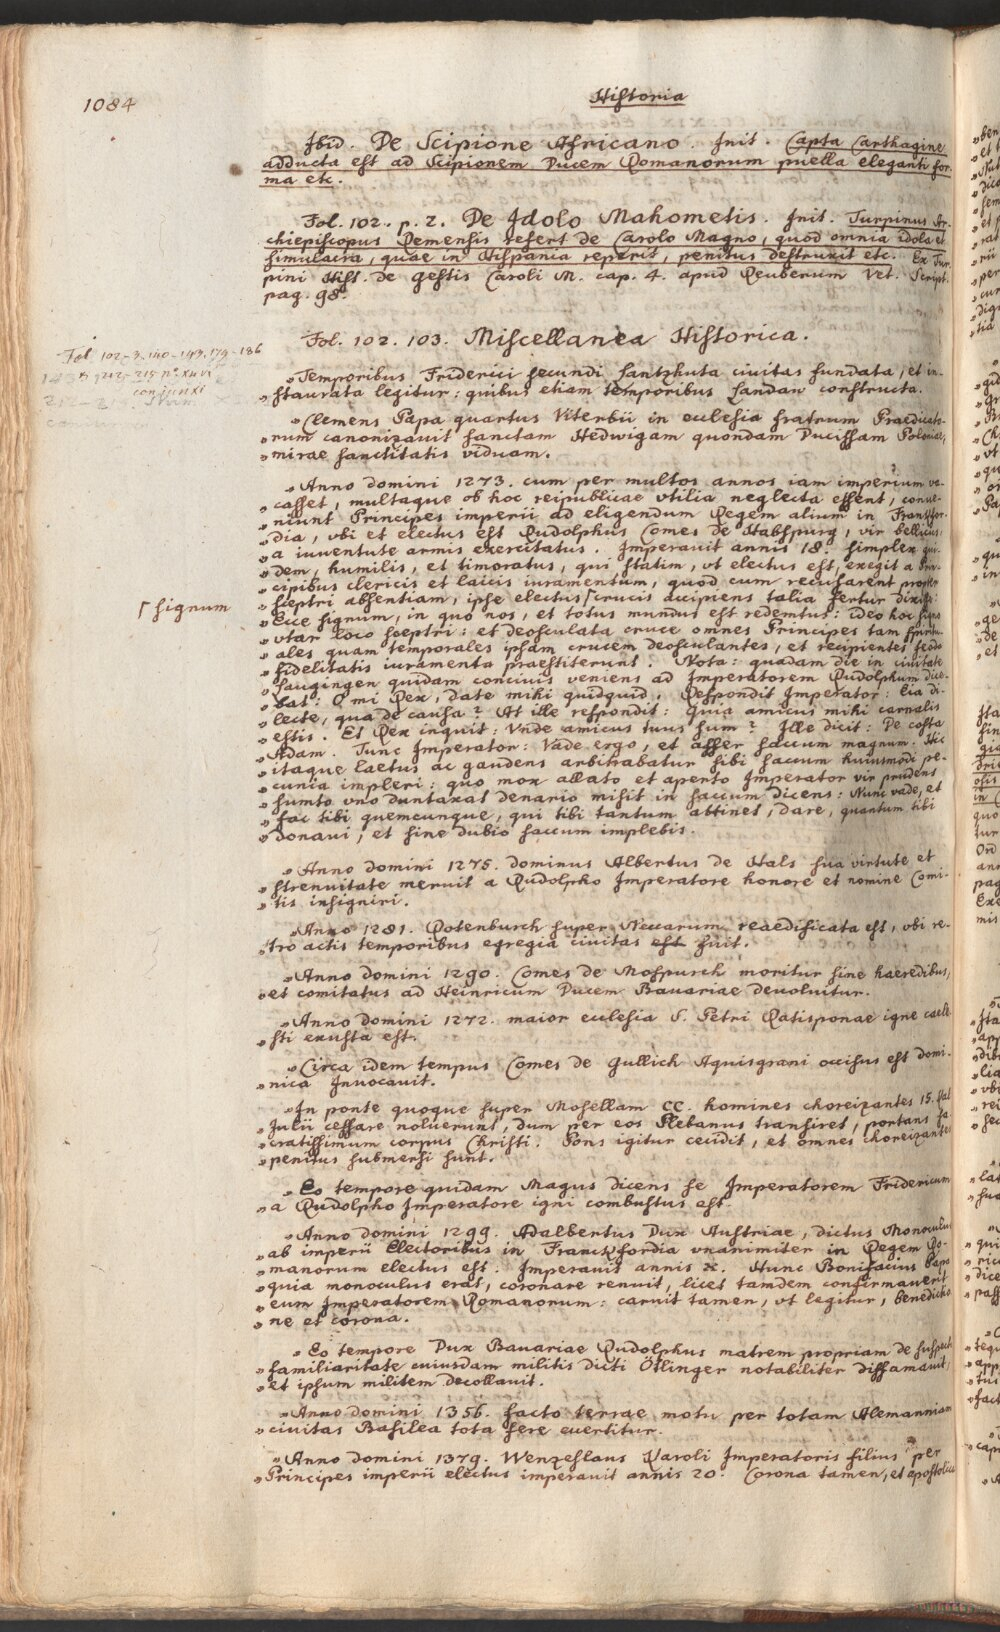 1084
Historia
Ibid. De Scipione Africano. Init. Capta Carthagine
adducta est ad Scipionem Ducem Romanorum puella eleganti for-
ma etc.
Fol. 102. p. 2. De Idolo Mahometis. Init. Turpinus Ar-
chiepiscopus Remensis refert de Carolo Magno, quod omnia idola et
simulacra, quae in Hispania reperit, penitus destruxit etc. Ex Tur-
pini Hist. de gestis Caroli M. cap. 4. apud Reuberum Vet. Script.
pag. 98.
Fol. 102. 103. Miscellanea Historica.
Fol. 102-3. 140-143. 179-186
coniunxi
„Temporibus Friderici secundi Lantzhuta civitas fundata, et in-
„staurata legitur: quibus etiam temporibus Landau constructa.
„Clemens Papa quartus Viterbii in ecclesia fratrum Praedicato-
„rum canonizavit sanctam Hedwigam quondam Ducissam Poloniae,
„mirae sanctitatis viduam.
„Anno domini 1273. cum per multos annos iam imperium va-
„casset, multaque ob hoc reipublicae vtilia neglecta essent, conue-
„niunt Principes imperii ad eligendum Regem alium in Franckfor-
„dia, vbi et electus est Rudolphus Comes de Habspurg, vir bellicus,
„a iuventute armis exercitatus. Imperavit annis 18. simplex qui-
„dem, humilis, et timoratus, qui statim, vt electus est, exegit a Prin-
„cipibus clericis et laicis iuramentum, quod cum recusarent propter
„sceptri absentiam, ipse electus ⌈crucis accipiens talia fertur dixisse:
⌈signum
„Ecce signum, in quo nos, et totus mundus est redemtus: ideo hoc signo
„vtar loco sceptri: et deosculata cruce omnes Principes tam spiritu-
„ales quam temporales ipsam crucem deosculantes, et recipientes feoda
„fidelitatis iuramenta praestiterunt. Nota: quadam die in civitate
„Laugingen quidam concivis veniens ad Imperatorem Rudolphum dice-
„bat: O mi Rex, date mihi quidquid. Respondit Imperator: Eia di-
„lecte, qua de causa? At ille respondit: Quia amicus mihi carnalis
„estis. Et Rex inquit: Vnde amicus tuus sum? Ille dicit: De costa
„Adam. Tunc Imperator: Vade ergo, et affer saccum magnum. Hic
„itaque laetus ac gaudens arbitrabatur sibi saccum huiusmodi pe-
„cunia impleri: quo mox allato et aperto Imperator vir prudens
„sumto vno duntaxat denario misit in saccum dicens: Nunc vade, et
„fac tibi quemcunque, qui tibi tantum attinet, dare, quantum tibi
„donavi, et sine dubio saccum implebis.
„Anno domini 1275. dominus Albertus de Hals sua virtute et
„strenuitate meruit a Rudolpho Imperatore honore et nomine Comi-
„tis insigniri.
„Anno 1281. Rotenburch super Neccarum reaedificata est, vbi re-
„tro actis temporibus egregia civitas est fuit.
„Anno domini 1290. Comes de Mospurch moritur sine haeredibus,
„et comitatus ad Heinricum Ducem Bavariae devolvitur.
„Anno domini 1272. maior ecclesia S. Petri Ratisponae igne caele-
„sti exusta est.
„Circa idem tempus Comes de Gullich Aquisgrani occisus est domi-
„nica Invocavit.
„In ponte quoque super Mosellam CC. homines choreizantes 15. Kal.
„Julii cessare noluerunt, dum per eos Plebanus transiret, portans sa-
„cratissimum corpus Christi. Pons igitur cecidit, et omnes choreizantes
„penitus submersi sunt.
„Eo tempore quidam Magus dicens se Imperatorem Fridericum
„a Rudolpho Imperatore igni combustus est.
„Anno domini 1299. Adalbertus Dux Austriae, dictus Monoculus
„ab imperii Electoribus in Franckfordia vnanimiter in Regem Ro-
„manorum electus est. Imperavit annis x. Hunc Bonifacius Papa
„quia monoculus erat, coronare renuit, licet tamdem confirmaverit
„eum Imperatorem Romanorum: caruit tamen, vt legitur, benedictio-
„ne et corona.
„Eo tempore Dux Bavariae Rudolphus matrem propriam de suspecta
„familiaritate cuiusdam militis dicti Ötlinger notabiliter diffamavit,
„et ipsum militem decollavit.
„Anno domini 1356. facto terrae motu per totam Alemanniam
„civitas Basilea tota fere evertitur.
„Anno domini 1379. Wenzeslaus Karoli Imperatoris filius per
„Principes imperii electus imperavit annis 20. Corona tamen, et apostolica